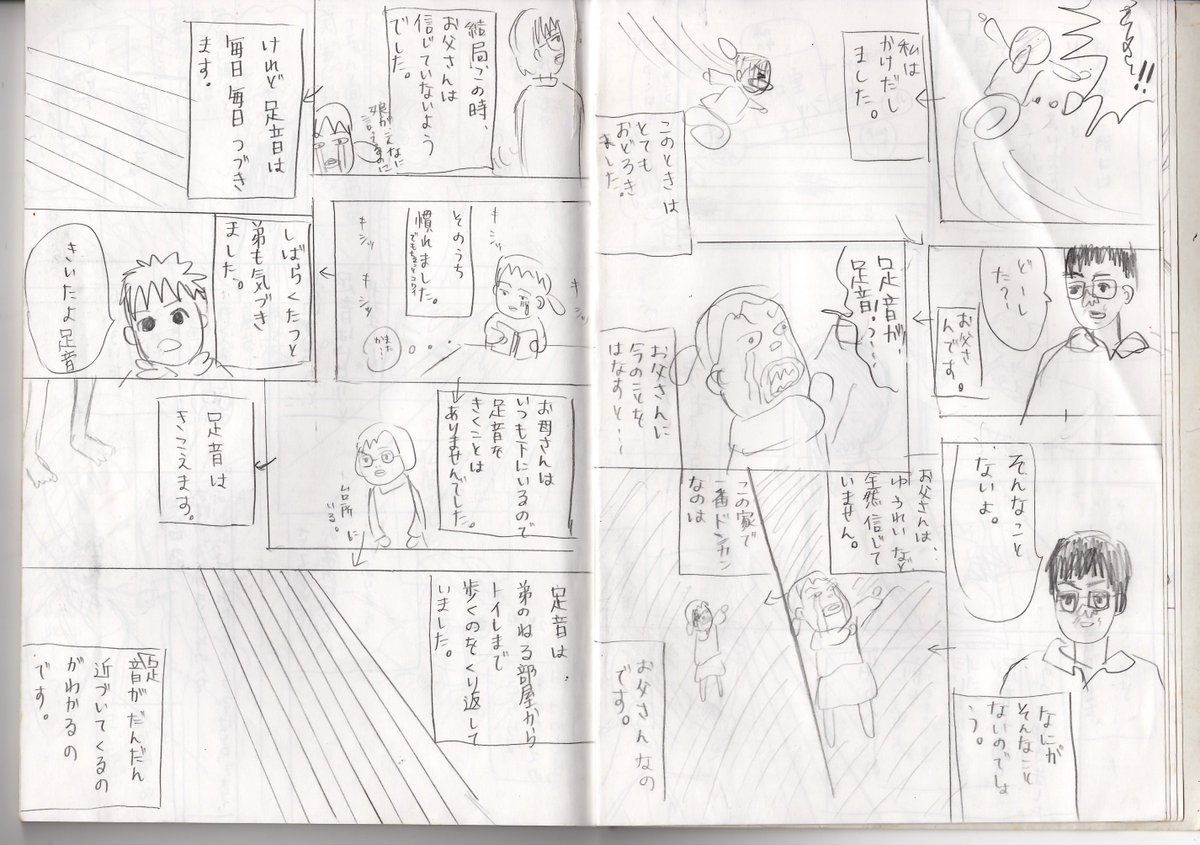 私は
かけだし
ました。
このときは
とても
おどろき
ました。
どーし
た?
お父さ
んです。
足音が、
足音!?…
お父さんに
今のことを
はなすと…
そんなこと
ないよ。
なにが
そんなこと
ないのでしょ
う。
お父さんは、
ゆうれいなど
全然信じて
いません。
この家で
一番ドンカン
なのは
お父さんなの
です。
結局この時、
お父さんは
信じていないよう
でした。
娘がこんなに
言ってるのに
けれど足音は
毎日毎日つづき
ます。
キシッ
キシッ
そのうち
慣れました。
でもちょっとコワイ
キシッ
キシッ
また
か…
しばらくたつと
弟も気づき
ました。
きいたよ足音
お母さんは
いつも下にいるので
足音を
きくことは
ありませんでした。
台所に
いる。
足音は
きこえます。
足音は
弟のねる部屋から
トイレまで
歩くのをくり返して
いました。
足音がだんだん
近づいてくるの
がわかるの
です。